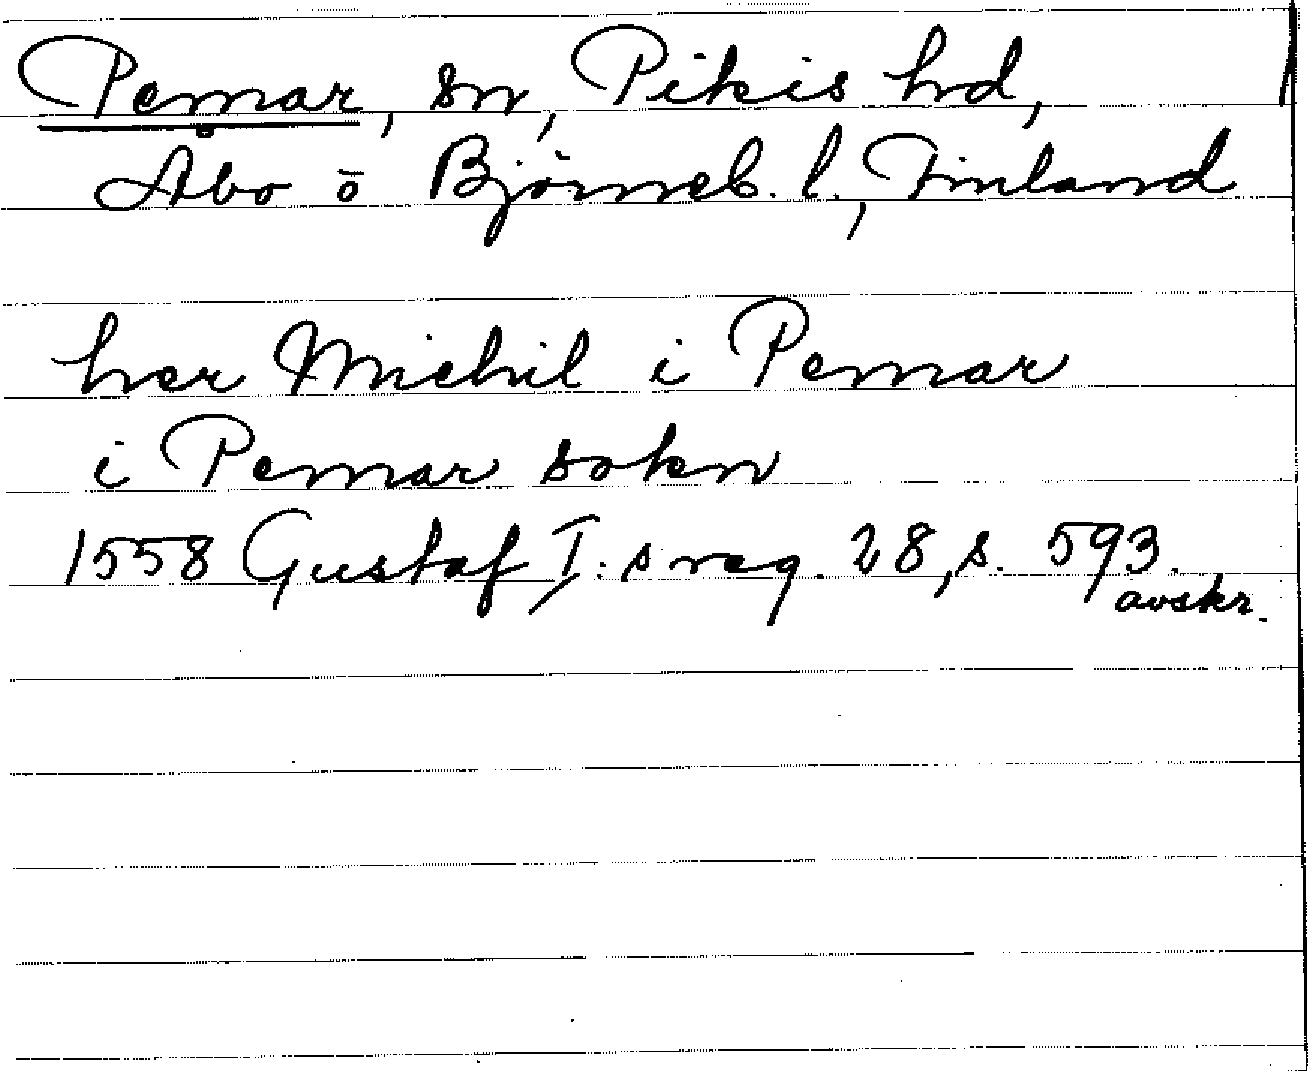 Pemar, sn, Pikis hd,
Åbo o Björneb. l., Finland
her Michil i Pemar
i Pemar sokn
1558 Gustaf I:s reg. 28, s. 593.
avskr.